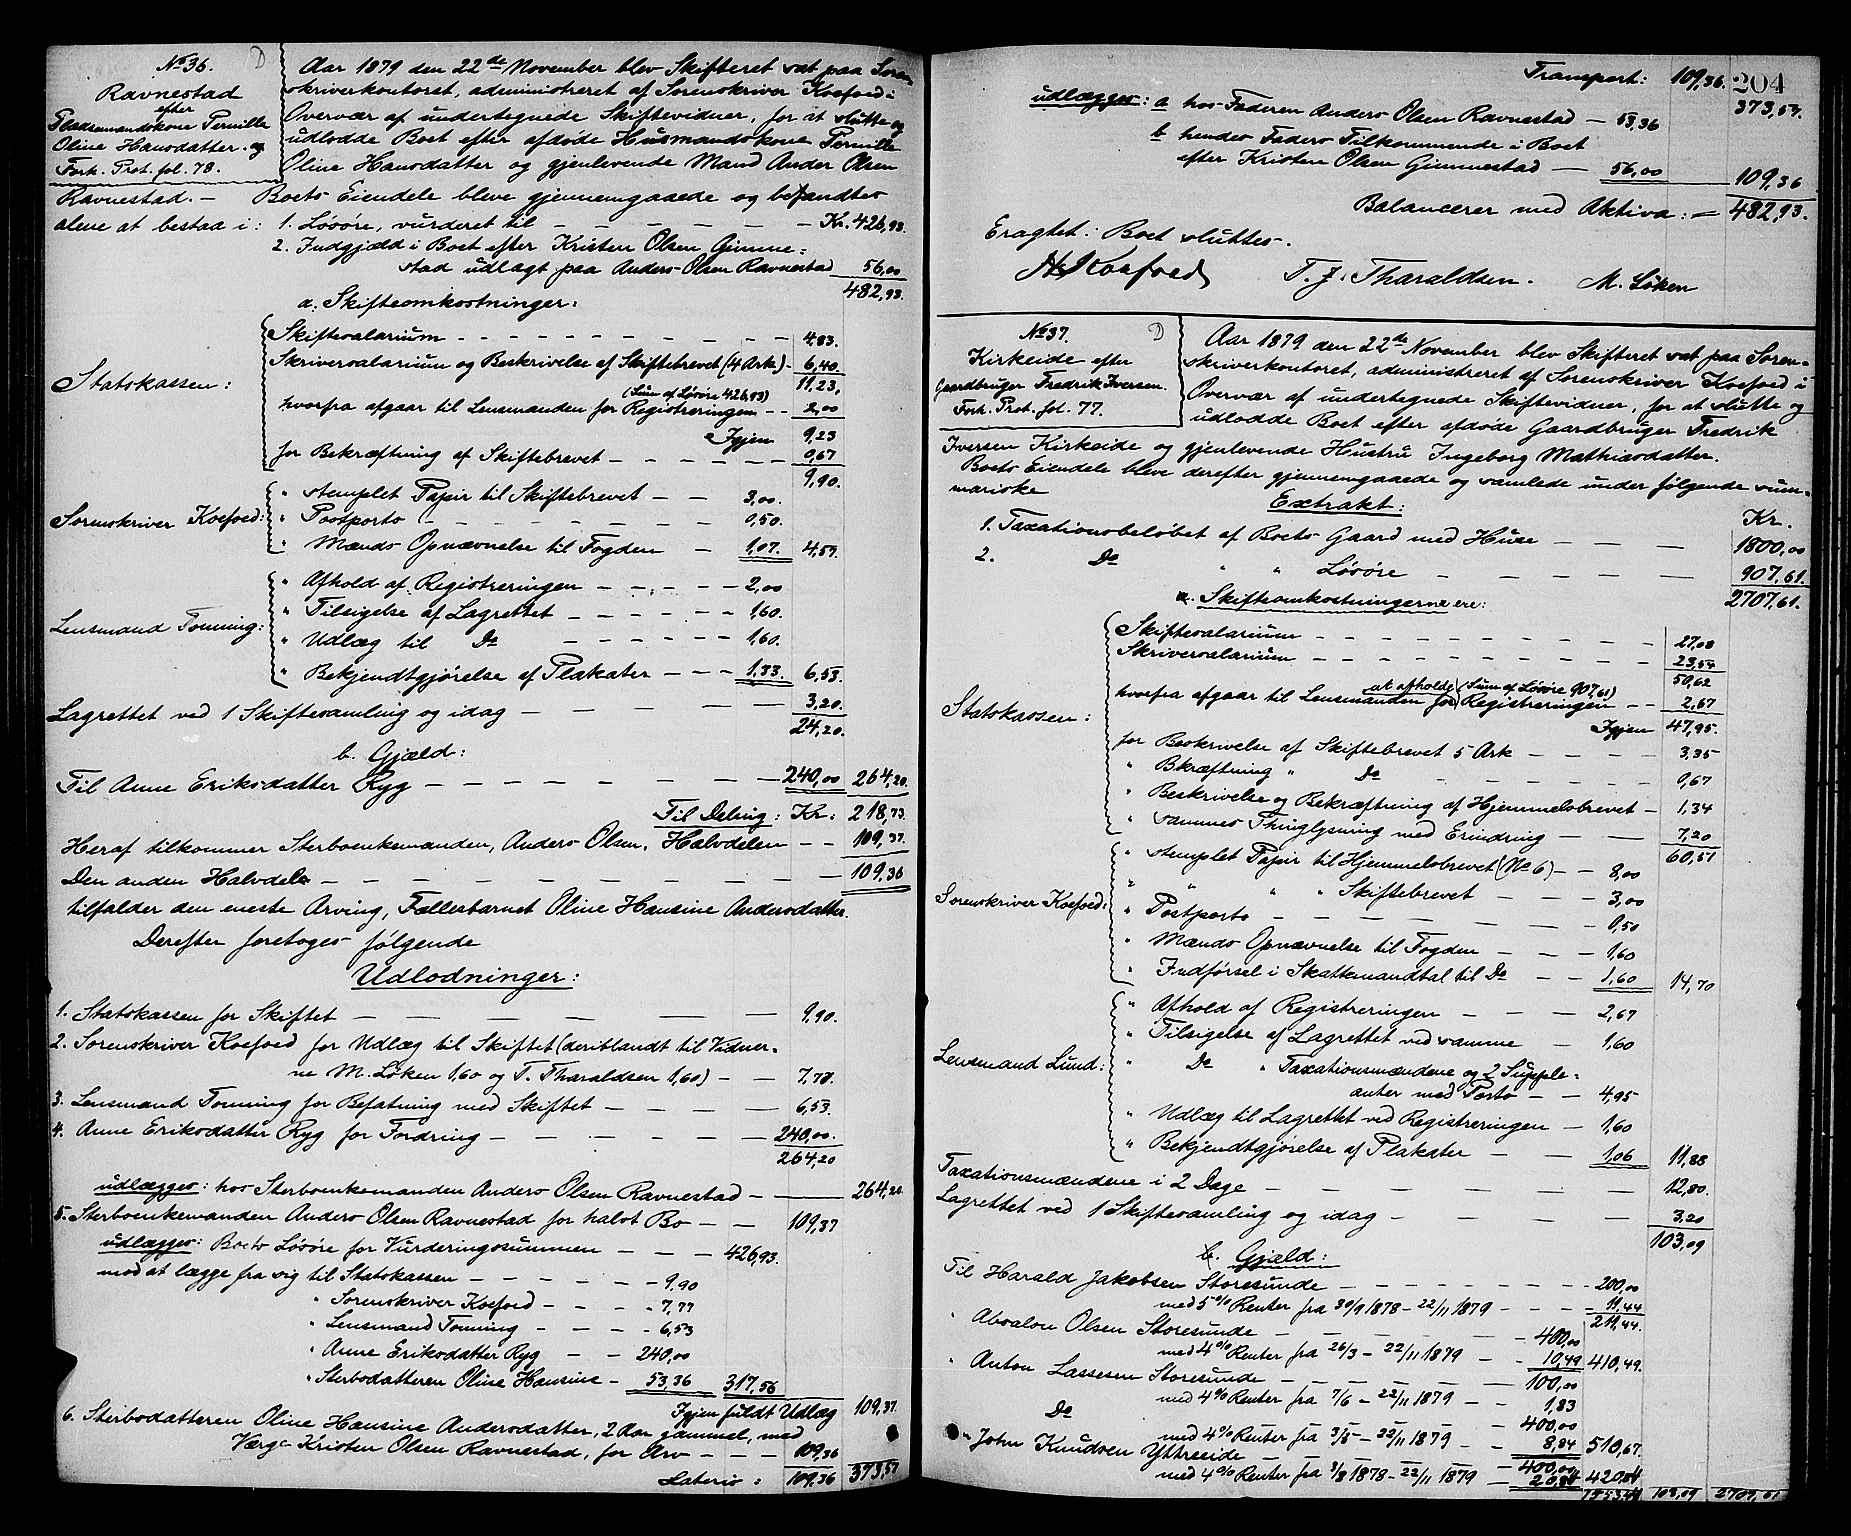 No 36. D
Ravnestad
efter
Pladsemandskone Pernille
Oline Hansdatter. og
Forh. Prot. fol. 78.
Aar 1879 den 22de November blev Skifteret sat paa Soren-
skriverkontoret, administreret af Sorenskriver Koefoed i
Overvær af undertegnede Skiftevidner, for at slutte og
udlodde Boet efter afdøde Husmandskone Pernille
Oline Hansdatter og gjenlevende Mand Ander Olsen
Ravnestad. — Boets Eiendele bleve gjennemgaaede og befandtes
alene at bestaa i: 1. Løsøre, vurderet til — Kr. 426,93.
2. Indgjæld i Boet efter Kristen Olsen Gimme-
stad udlagt paa Anders Olsen Ravnestad 56,00
482,93.
a. Skifteomkostninger:
Statskassen:
Skiftesalarium 4,83.
Skriversalarium og Beskrivelse af Skiftebrevet (4 Ark) - 6,40.
11,23,
(Sum af Løsøre 426,93)
hvorfra afgaar til Lensmanden for Registreringen -- 2,00
Igjen 9,23
for Bekræftning af Skiftebrevet 0,67
9,90.
Sorenskriver Koefoed:
" stemplet Papir til Skiftebrevet — 3,00.
" Postporto 0,50.
" Mænds Opnævnelse til Fogden — 1,07. 4,57.
Lensmand Tonning:
" Afhold af Registreringen 2,00
" Tilsigelse af Lagrettet 1,60.
" Udlæg til Do 1,60.
" Bekjendtgjørelse af Plakater 1,33. 6,53.
Lagrettet ved 1 Skiftesamling og idag 3,20.
24,20.
b. Gjæld:
Til Anne Eriksdatter Ryg 240,00 264,20.
Til Deling: Kr: 218,73.
Heraf tilkommer Sterboenkemanden, Anders Olsen, Halvdelen -- 109,37.
Den anden Halvdel 109,36
tilfalder den eneste Arving, Fællesbarnet Oline Hansine Andersdatter.
Derefter foretoges følgende
Udlodninger:
1. Statskassen for Skiftet 9,90.
2. Sorenskriver Koefoed for Udlæg til Skiftet (deriblandt til Vidner-
ne M. Løken 1,60 og T. Tharaldsen 1,60) 7,77.
3. Lensmand Tonning for Befatning med Skiftet 6,53
4. Anne Eriksdatter Ryg for Fordring 240,00.
264,20
udlægges: hos Sterboenkemanden Anders Olsen Ravnestad 264,20.
5. Sterboenkemanden Anders Olsen Ravnestad for halvt Bo — 109,37
udlægges: Boets Løsøre for Vurderingssummen 426,93.
mod at lægge fra sig til Statskassen 9,90
" Sorenskriver Koefoed 7,77
" Lensmand Tonning 6,53
" Anne Eriksdatter Ryg 240,00
" Sterbodatteren Oline Hansine 53,36 317,56
Igjen fuldt Udlæg 109,37.
6. Sterbodatteren Oline Hansine Andersdatter, 2 Aar gammel, med
Værge Kristen Olsen Ravnestad, for Arv 109,36
Lateris: 109,36 373,57
Transport: 109,36. 204
373,57.
udlægges: a hos Faderen Anders Olsen Ravnestad — 53,36
b hendes Faders Tilkommende i Boet
efter Kristen Olsen Gimmestad 56,00 109,36
Balancerer med Aktiva: = 482,93.
Eragtet: Boet sluttes.
Koefoed T. J. Tharaldsen. M. Løken
No 37. D
Kirkeide efter
Gaardbruger Fredrik Iversen.
Forh. Prot. fol. 77.
Aar 1879 den 22de November blev Skifteret sat paa Soren-
skriverkontoret, administreret af Sorenskriver Koefoed i
Overvær af undertegnede Skiftevidner, for at slutte og
udlodde Boet efter afdøde Gaardbruger Fredrik
Iversen Kirkeide og gjenlevende Hustru Ingeborg Mathiasdatter.
Boets Eiendele bleve derefter gjennemgaaede og samlede under følgende sum-
mariske
Extrakt: Kr.
1. Taxationsbeløbet af Boets Gaard med Huse 1800,00
2. Do " " Løsøre 907,61.
2707,61.
a. Skifteomkostningerne ere:
Statskassen:
Skiftesalarium 27,08
Skriversalarium 23,54
50,62
at afholde (Sum af Løsøre 907,61)
hvorfra afgaar til Lensmanden for Registreringen -- 2,67
Igjen 47,95.
for Beskrivelse af Skiftebrevet 5 Ark 3,35
" Bekræftning " Do 0,67
" Beskrivelse og Bekræftning af Hjemmelsbrevet — 1,34
" sammes Thinglysning med Erindring 7,20
60,51
Sorenskriver Koefoed:
" stemplet Papir til Hjemmelsbrevet (No 6) -- 8,00
" " " " Skiftebrevet 3,00
" Postporto 0,50
" Mænds Opnævnelse til Fogden 1,60
" Indførsel i Skattemandtal til Do 1,60 14,70
Lensmand Lund:
" Afhold af Registreringen 2,67
" Tilsigelse af Lagrettet ved samme 1,60
" Do " Taxationsmændene og 2 Supple-
anter med Porto 4,95
" Udlæg til Lagrettet ved Registreringen 1,60
" Bekjendtgjørelse af Plakater 1,06 11,88
Taxationsmændene i 2 Dage 12,80.
Lagrettet ved 1 Skiftesamling og idag 3,20
103,09
b. Gjæld:
Til Harald Jakobsen Storesunde 200,00
med 5% Renter fra 30/9 1878 - 22/11 1879 11,44
211,44.
" Absalon Olsen Storesunde 400,00
med 4% Renter fra 26/3 - 22/11 1879 10,49 410,49.
" Anton Lassesen Storesunde 100,00
med 4% Renter fra 7/6 - 22/11 1879 1,83
Do 400,00
med 4% Renter fra 3/5 - 22/11 1879 8,84 510,67
" John Knudsen Yttreeide 400,00
med 4% Renter fra 3/8 1878 - 22/11 1879 20,84 420,84
103,09